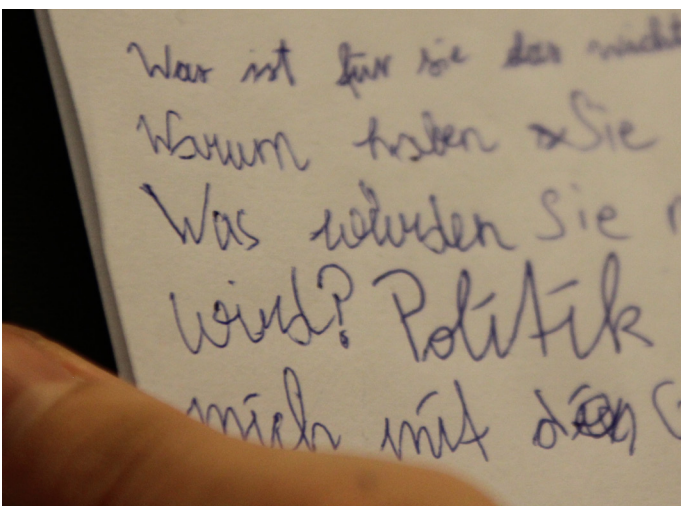 Was ist für sie das wicht
Warum haben Sie
Was würden Sie
wird? Politik
mich mit den